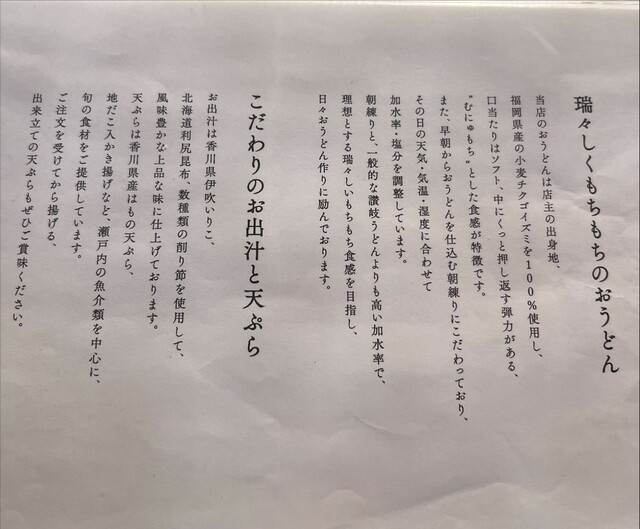 瑞々しくもちもちのおうどん
当店のおうどんは店主の出身地、
福岡県産の小麦チクゴイズミを100%使用し、
口当たりはソフト、中にくっと押し返す弾力がある、
"むにゅもち"とした食感が特徴です。
また、早朝からおうどんを仕込む朝練りにこだわっており、
その日の天気・気温・湿度に合わせて
加水率・塩分を調整しています。
朝練りと、一般的な讃岐うどんよりも高い加水率で、
理想とする瑞々しいもちもち食感を目指し、
日々おうどん作りに励んでおります。
こだわりのお出汁と天ぷら
お出汁は香川県伊吹いりこ、
北海道利尻昆布、数種類の削り節を使用して、
風味豊かな上品な味に仕上げております。
天ぷらは香川県産はもの天ぷら、
地だこ入かき揚げなど、瀬戸内の魚介類を中心に、
旬の食材をご提供しています。
ご注文を受けてから揚げる、
出来立ての天ぷらもぜひご賞味ください。